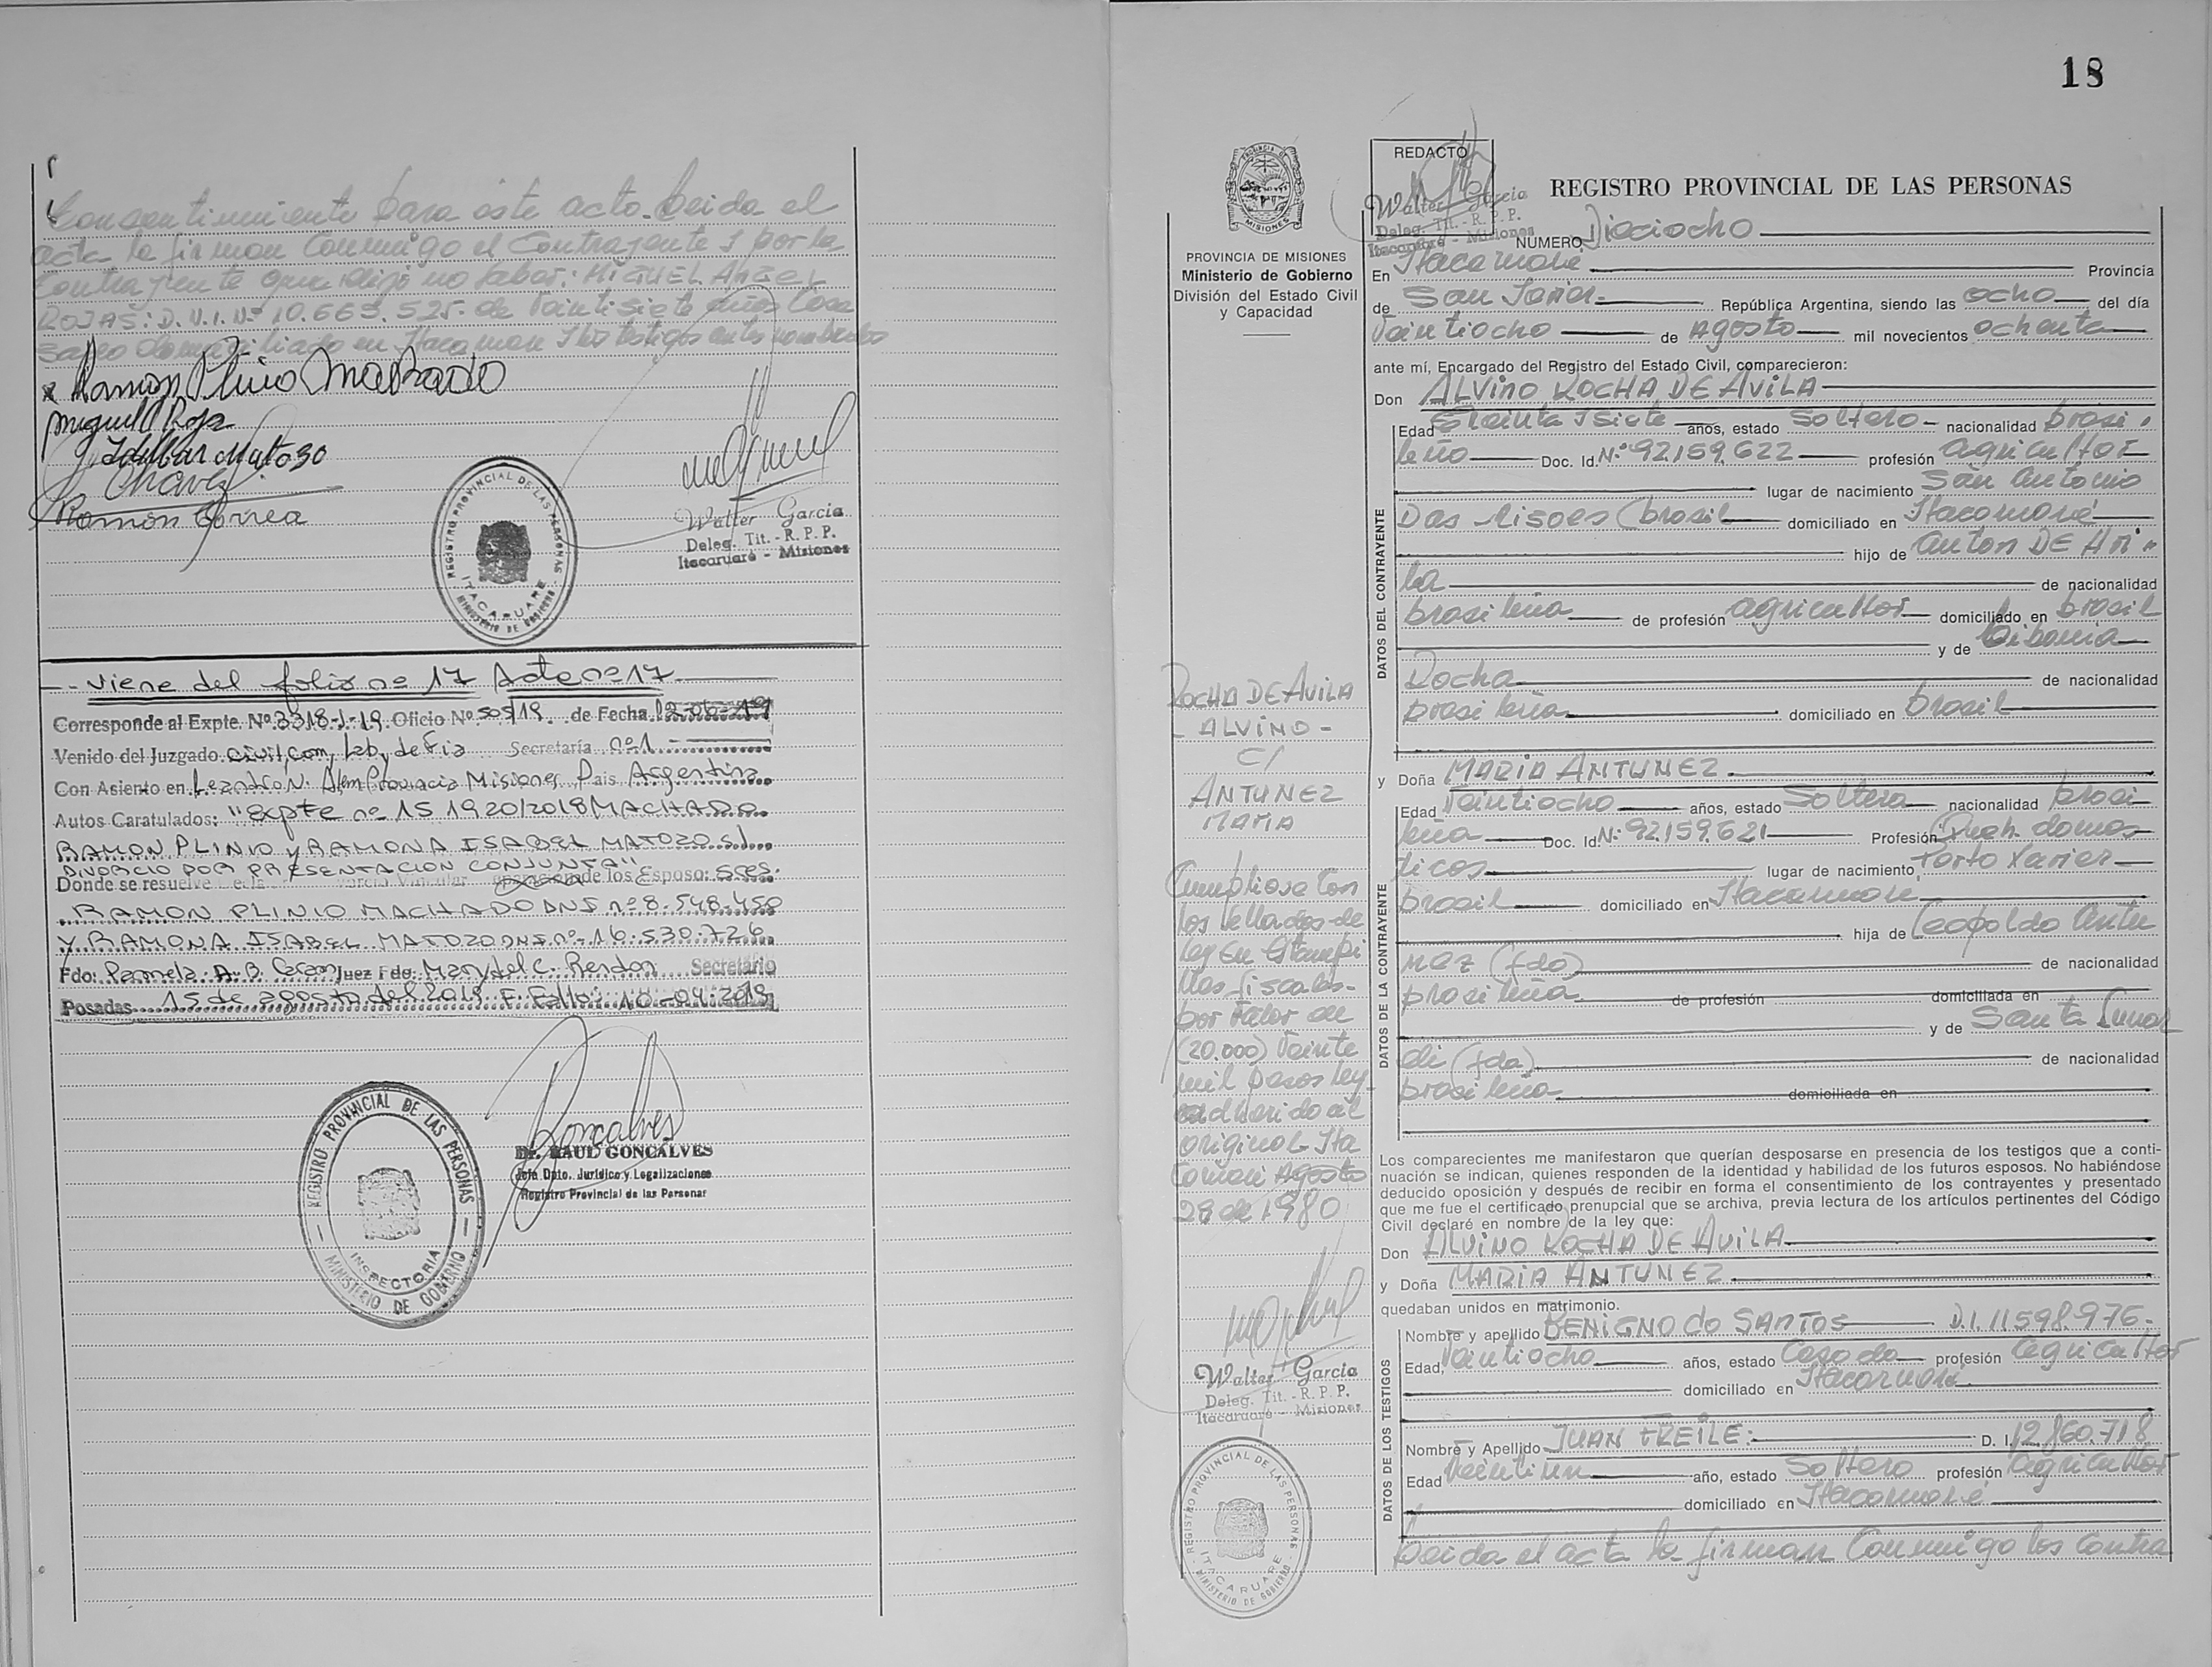 Consentimiento para este acto. Leida el
acta la firman Conmigo el Contrayente y por la
Contrayente que dijo no saber: MIGUEL ANGEL
ROJAS: D.N.I. Nº 10.663.525. de Veintisiete años Casa
domiciliado en Itacaruare y los testigos antes nombrados
Ramon Plinio Machado
Miguel Roja
Matozo
Chavez
Ramon Correa
REGISTRO PROVINCIAL DE LAS PERSONAS
ITACARUARE
MINISTERIO DE GOBIERNO
Walter Garcia
Deleg. Tit. - R. P. P.
Itacaruaré - Misiones
-- Viene del folio nº 17 Acta nº 17
Corresponde al Expte. Nº 3318-J-19 Oficio Nº 505/19 de Fecha
Venido del Juzgado Civil, Com, Lab, de Fia Secretaría nº 1
Con Asiento en Leandro N. Alem Provincia Misiones Pais Argentina
Autos Caratulados: "Expte nº 151920/2018 MACHADO
RAMON PLINIO y RAMONA ISABEL MATOZO s/
DIVORCIO POR PRESENTACION CONJUNTA"
Donde se resuelve de los Esposo: sres.
RAMON PLINIO MACHADO DNI nº 8.548.450
Y RAMONA ISABEL MATOZO DNI nº 16.530.726
Fdo: Pamela A. B. Juez Fdo: Marydel C. Rendon Secretario
Posadas 15 de agosto del 2019 F. Fallo: 10-04-2019
REGISTRO PROVINCIAL DE LAS PERSONAS
INSPECTORIA
MINISTERIO DE GOBIERNO
Goncalves
Dr. RAUL GONCALVES
Jefe Dpto. Jurídico y Legalizaciones
Registro Provincial de las Personas
18
PROVINCIA DE MISIONES
Ministerio de Gobierno
División del Estado Civil
y Capacidad
REDACTO
Walter Garcia
Deleg. Tit. - R. P. P.
Itacaruaré - Misiones
REGISTRO PROVINCIAL DE LAS PERSONAS
NUMERO Dieciocho
En Itacaruaré Provincia
de San Javier República Argentina, siendo las ocho del día
Veintiocho de Agosto mil novecientos ochenta
ante mí, Encargado del Registro del Estado Civil, comparecieron:
Don ALVINO ROCHA DE AVILA
DATOS DEL CONTRAYENTE
Edad Treinta y Siete años, estado Soltero nacionalidad brasi
leño Doc. Id. Nº 92.159.622 profesión agricultor
lugar de nacimiento San Antonio
Das Misoes (brasil domiciliado en Itacaruaré
hijo de Anton DE AVI
la de nacionalidad
brasileña de profesión agricultor domiciliado en brasil
y de
Rocha de nacionalidad
brasileña domiciliado en Brasil
y Doña MARIA ANTUNEZ
DATOS DE LA CONTRAYENTE
Edad Veintiocho años, estado Soltera nacionalidad brasi
leña Doc. Id. Nº 92.159.621 Profesión Queh. domes
ticos lugar de nacimiento Porto Xavier
brasil domiciliado en Itacaruare
hija de Leopoldo Antu
nez (fdo) de nacionalidad
brasileña de profesión domiciliada en
y de Santa Lunar
di (fda) de nacionalidad
brasileña domiciliada en
Los comparecientes me manifestaron que querían desposarse en presencia de los testigos que a conti-
nuación se indican, quienes responden de la identidad y habilidad de los futuros esposos. No habiéndose
deducido oposición y después de recibir en forma el consentimiento de los contrayentes y presentado
que me fue el certificado prenupcial que se archiva, previa lectura de los artículos pertinentes del Código
Civil declaré en nombre de la ley que:
Don ALVINO ROCHA DE AVILA
y Doña MARIA ANTUNEZ
quedaban unidos en matrimonio.
DATOS DE LOS TESTIGOS
Nombre y apellido BENIGNO do SANTOS D.I. 11.598.976
Edad Veintiocho años, estado Casado profesión agricultor
domiciliado en Itacaruaré
Nombre y Apellido JUAN FREILE: D. I. 12.860.718
Edad Veintiun año, estado Soltero profesión agricultor
domiciliado en Itacaruaré
Leida el acta la firman Conmigo los contra
ROCHA DE AVILA
ALVINO -
C/
ANTUNEZ
MARIA
Cumpliose con
los sellados de
ley en Estampi
llas fiscales
por valor de
(20.000) Veinte
mil pesos ley
adherido al
original Ita
caruare Agosto
28 de 1980
Walter Garcia
Deleg. Tit. - R. P. P.
Itacaruaré - Misiones
REGISTRO PROVINCIAL DE LAS PERSONAS
ITACARUARE
MINISTERIO DE GOBIERNO